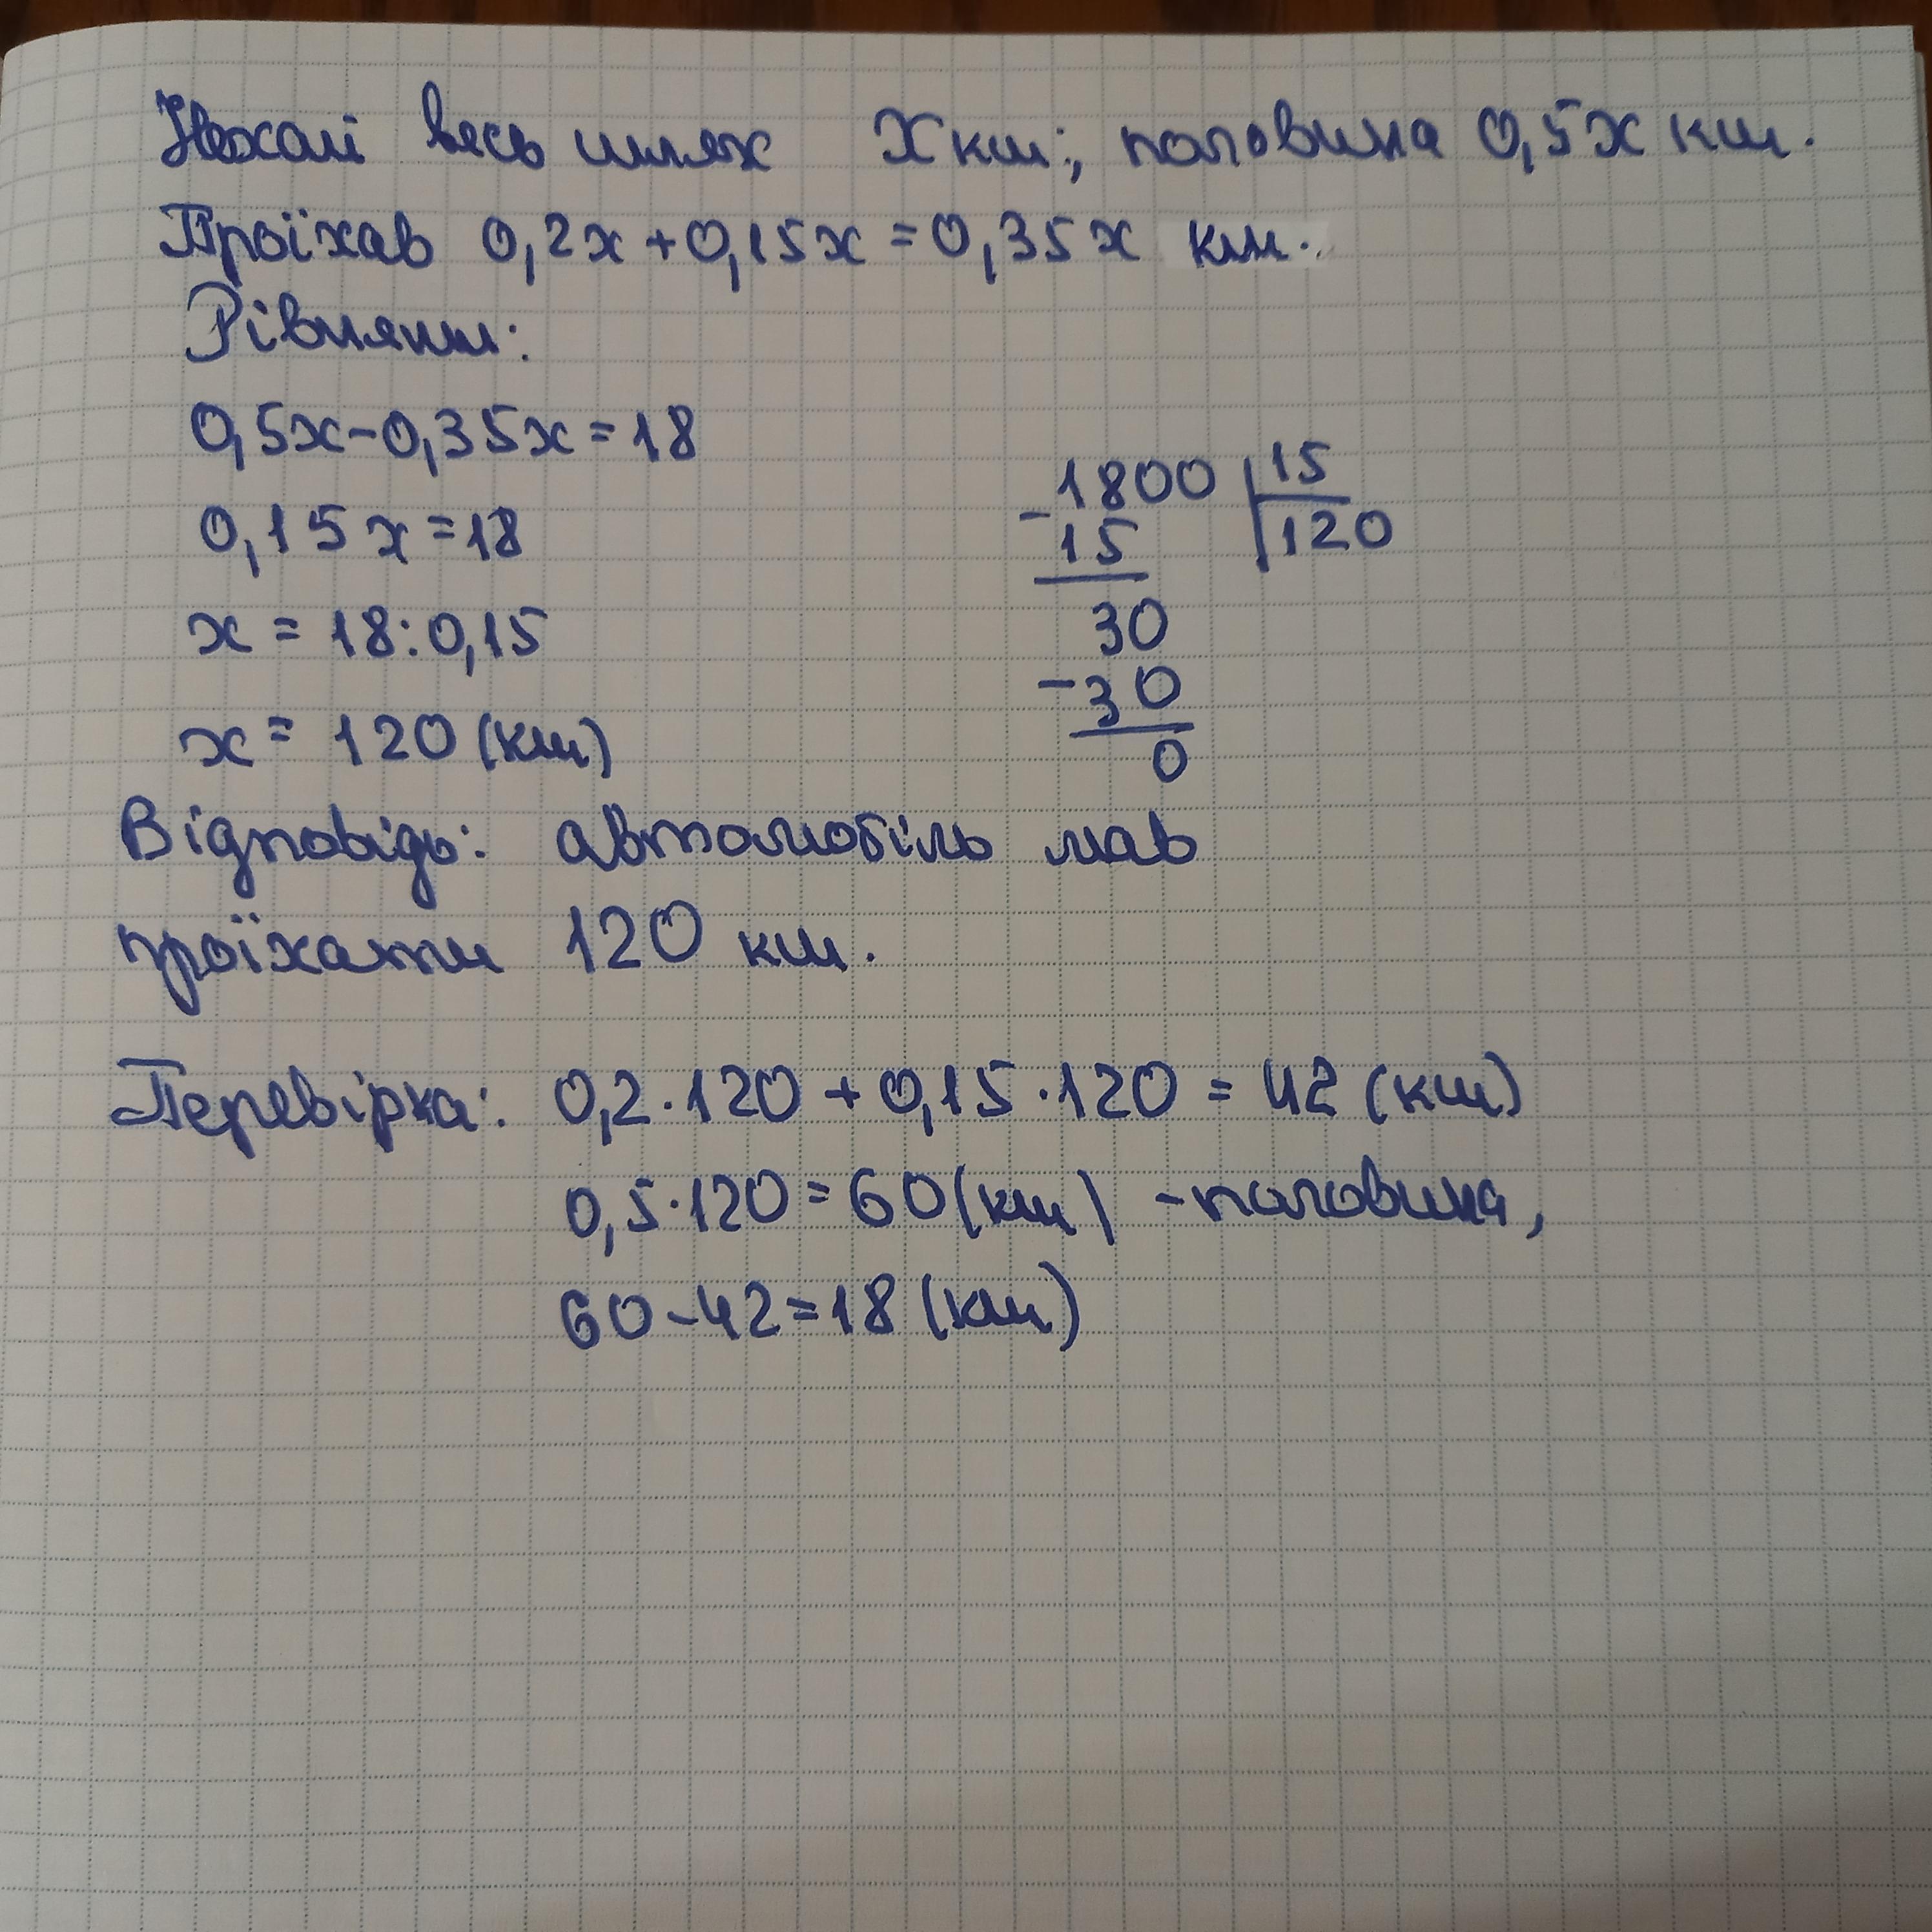 Нехай весь шлях х км; половина 0,5х км.
Проїхав 0,2х+0,15х=0,35х км.
Рівняння:
0,5х-0,35х=18
0,15х=18
х = 18:0,15
х = 120 (км)
-1800 | 15
15 | 120
30
-30
0
Відповідь: автомобіль мав
проїхати 120 км.
Перевірка: 0,2·120 + 0,15·120 = 42 (км)
0,5·120=60(км) -половина,
60-42=18 (км)